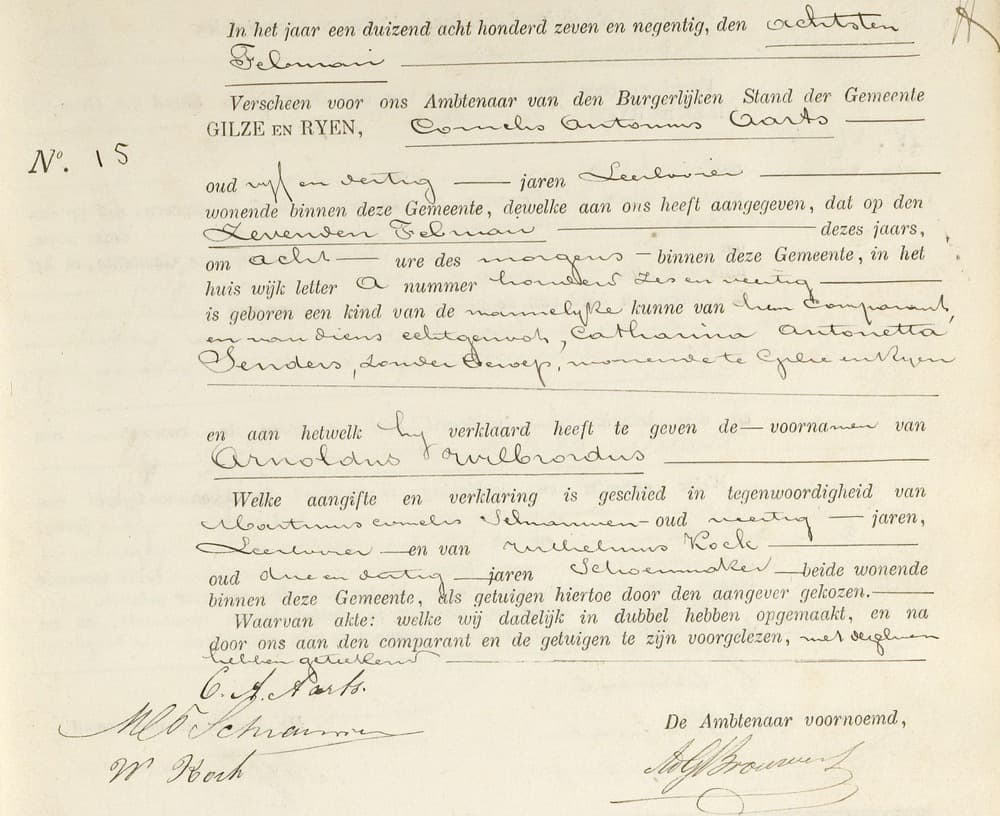 In het jaar een duizend acht honderd zeven en negentig, den achtsten
Februari
Verscheen voor ons Ambtenaar van den Burgerlijken Stand der Gemeente
GILZE EN RYEN, Cornelis Antonius Aarts
No. 15
oud vijf en dertig jaren Leerlooier
wonende binnen deze Gemeente, dewelke aan ons heeft aangegeven, dat op den
Zevenden Februari dezes jaars,
om acht ure des morgens binnen deze Gemeente, in het
huis wijk letter A nummer honderd zes en veertig
is geboren een kind van de mannelyke kunne van hem Comparant,
en van diens echtgenoot, Catharina Antonetta
Senders, zonder beroep, wonende te Gilze en Ryen
en aan hetwelk hy verklaard heeft te geven de voornamen van
Arnoldus Wilbrordus
Welke aangifte en verklaring is geschied in tegenwoordigheid van
Martinus Cornelis Schrauwen oud veertig jaren,
Leerlooier en van Wilhelmus Kock
oud drie en dertig jaren Schoenmaker beide wonende
binnen deze Gemeente, als getuigen hiertoe door den aangever gekozen.
Waarvan akte: welke wij dadelijk in dubbel hebben opgemaakt, en na
door ons aan den comparant en de getuigen te zijn voorgelezen, met dezelven
hebben geteekend
C. A. Aarts.
Schrauwen
De Ambtenaar voornoemd,
W Kock